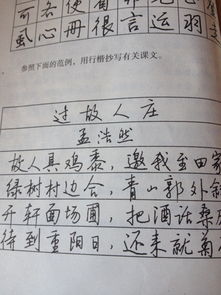 可各使鲁
风心册很言运羽
参照下面的范例,用行楷抄写有关课文。
过故人庄
孟浩然
故人具鸡黍,邀我至田家
绿树村边合,青山郭外斜
开轩面场圃,把酒话桑麻
待到重阳日,还来就菊